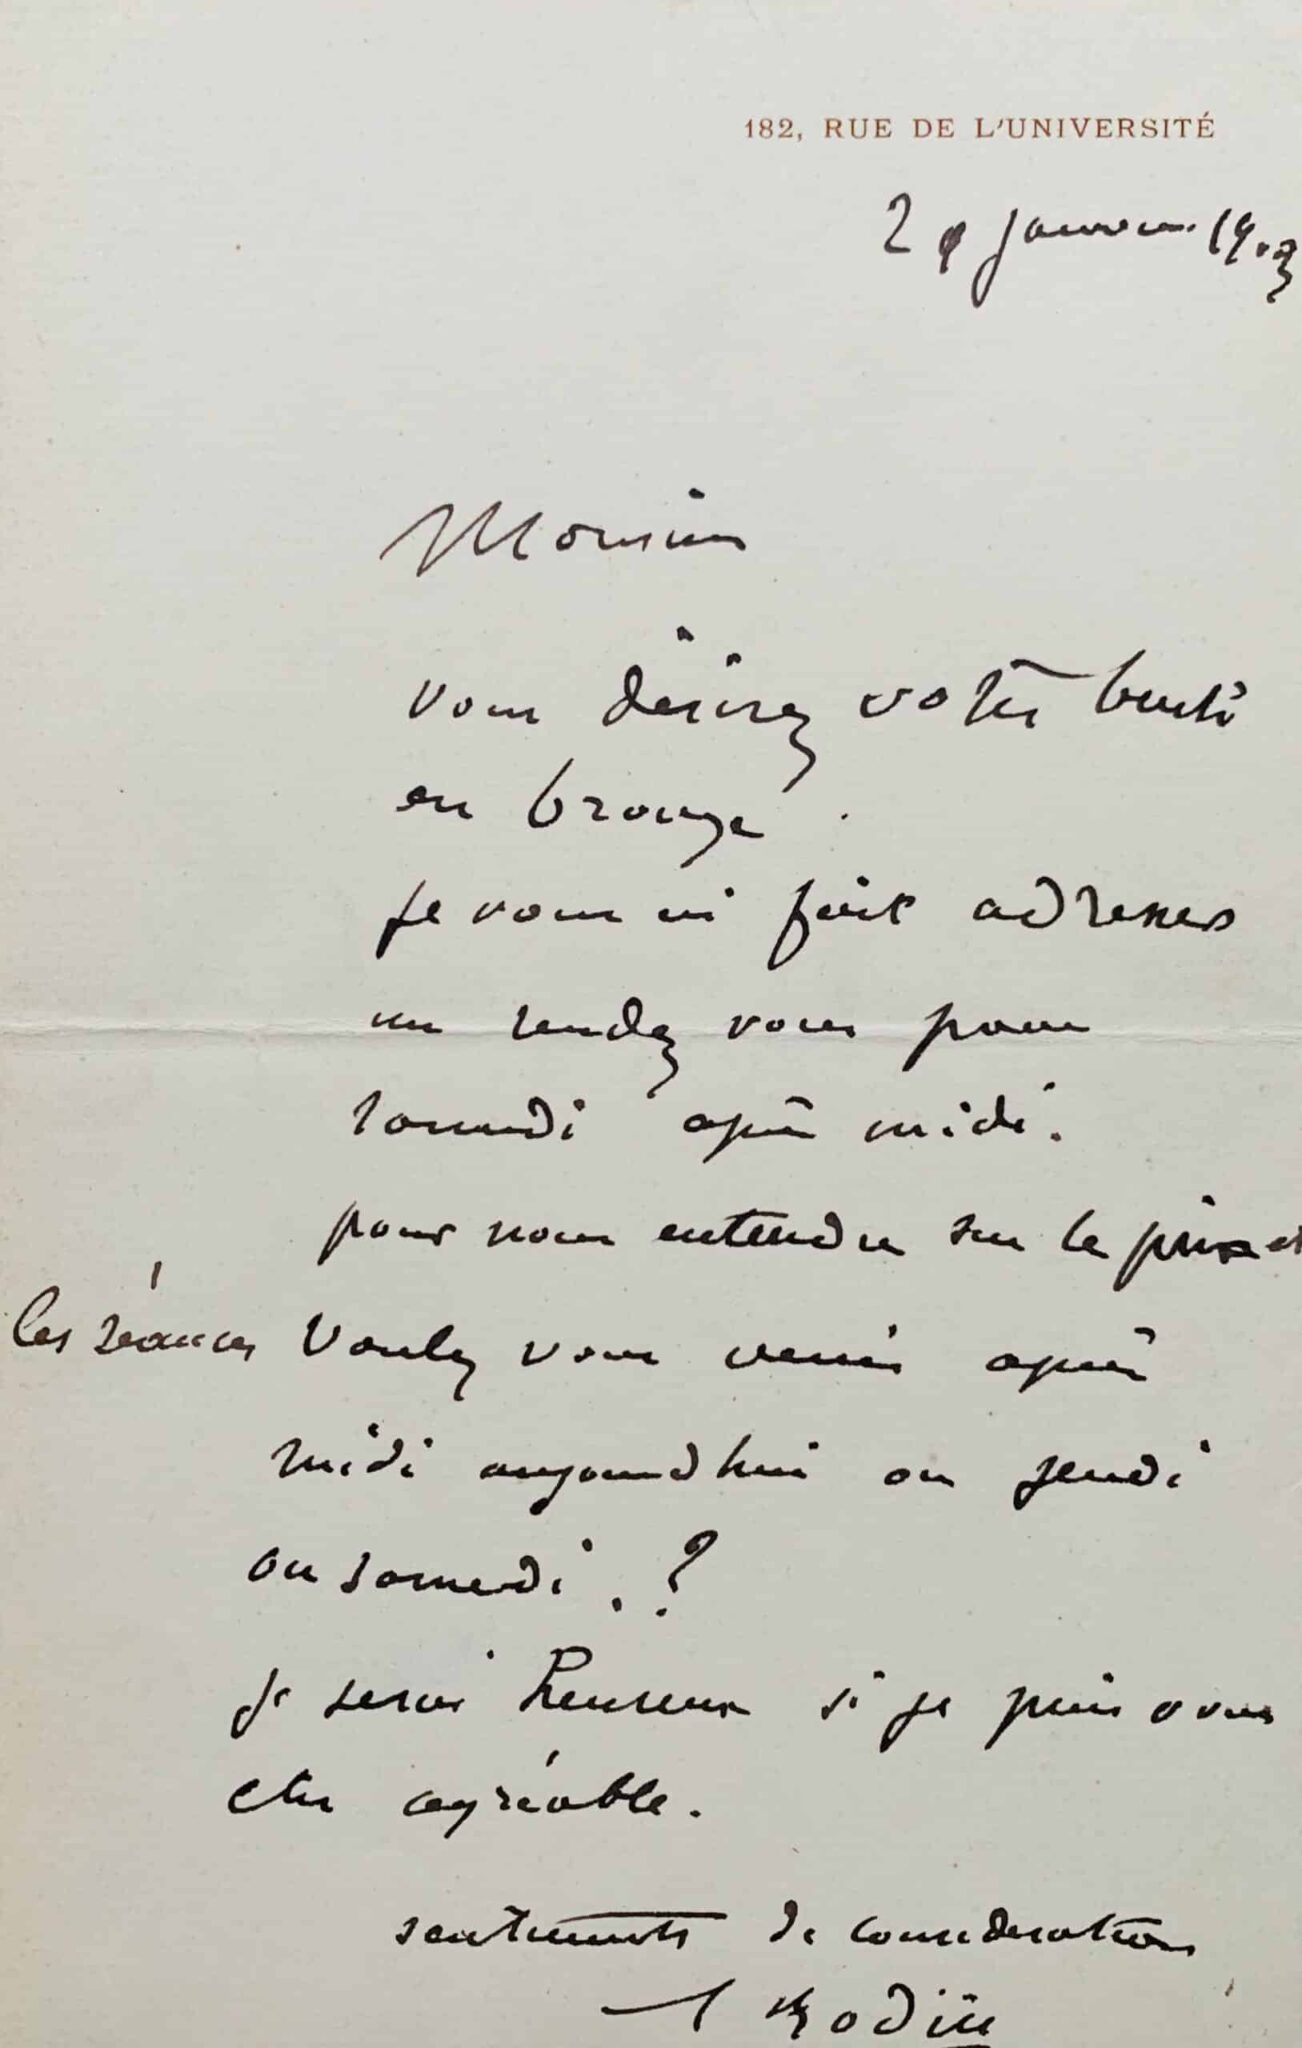 182, RUE DE L'UNIVERSITÉ
janvier 1903
Monsieur
vous désirez votre buste
en bronze.
Je vous ai fait adresser
un rendez vous pour
samedi après midi.
pour nous entendre sur le prix et
les séances Voulez vous venir après
midi aujourd hui ou jeudi
ou samedi. ?
Je serai heureux si je puis vous
etre agréable.
sentiments de consideration
A Rodin